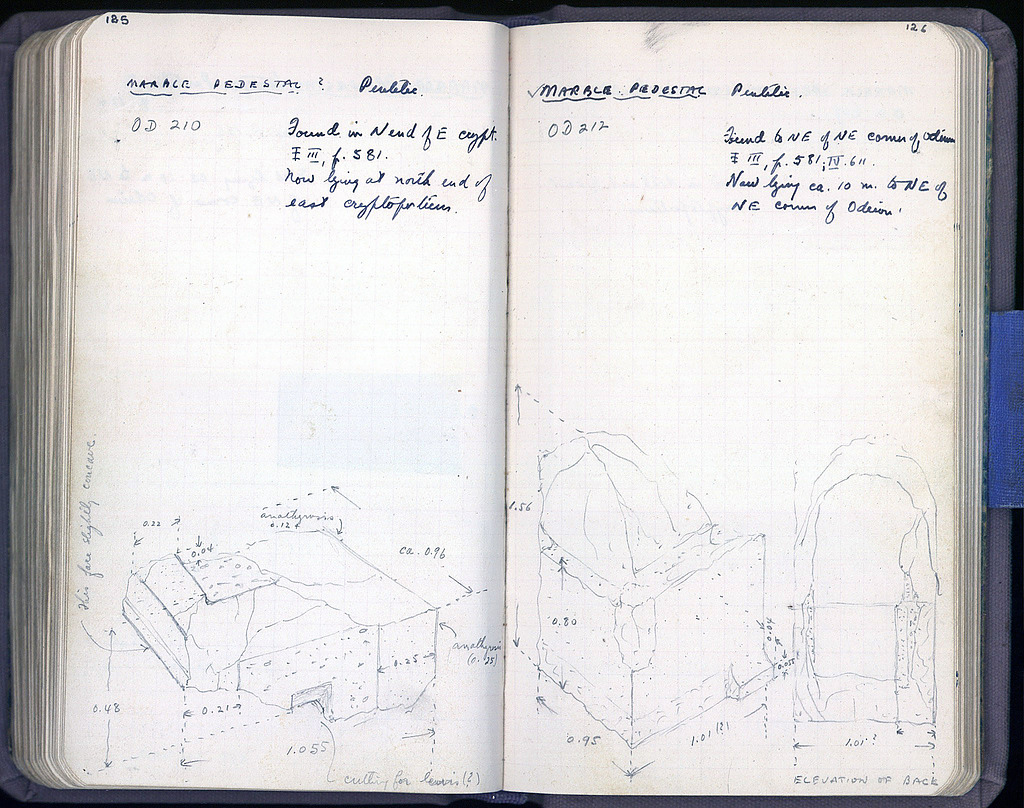 125
MARBLE PEDESTAL ? Pentelic.
OD 210
Found in N end of E crypt.
I III, p. 581.
Now lying at north end of
east cryptoporticus.
This face slightly concave.
0.22
0.04
anathyrosis
0.12 +
ca. 0.96
anathyrosis
(0.25)
0.25
0.48
0.21
1.055
cutting for lewis (?)
126
✓ MARBLE PEDESTAL Pentelic.
OD 212
Found to NE of NE corner of Odeion
I III, p. 581, IV. 611.
Now lying ca. 10 m. to NE of
NE corner of Odeion.
1.56
0.80
0.04
0.055
0.95
1.01 (?)
1.01 ?
ELEVATION OF BACK